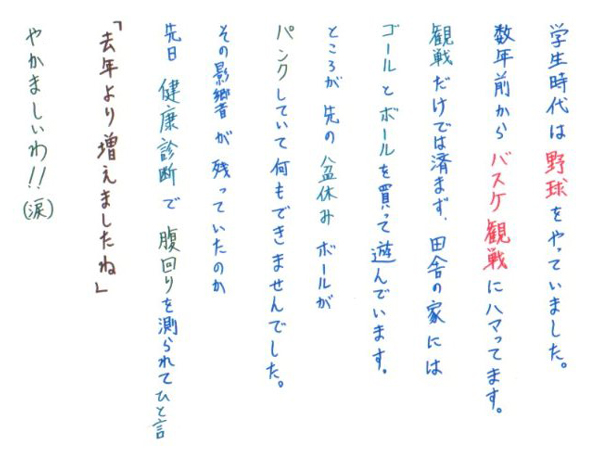 学生時代は野球をやっていました。
数年前からバスケ観戦にハマってます。
観戦だけでは済まず、田舎の家には
ゴールとボールを買って遊んでいます。
ところが先の盆休みボールが
パンクしていて何もできませんでした。
その影響が残っていたのか
先日健康診断で腹回りを測られてひと言
「去年より増えましたね」
やかましいわ!!(涙)